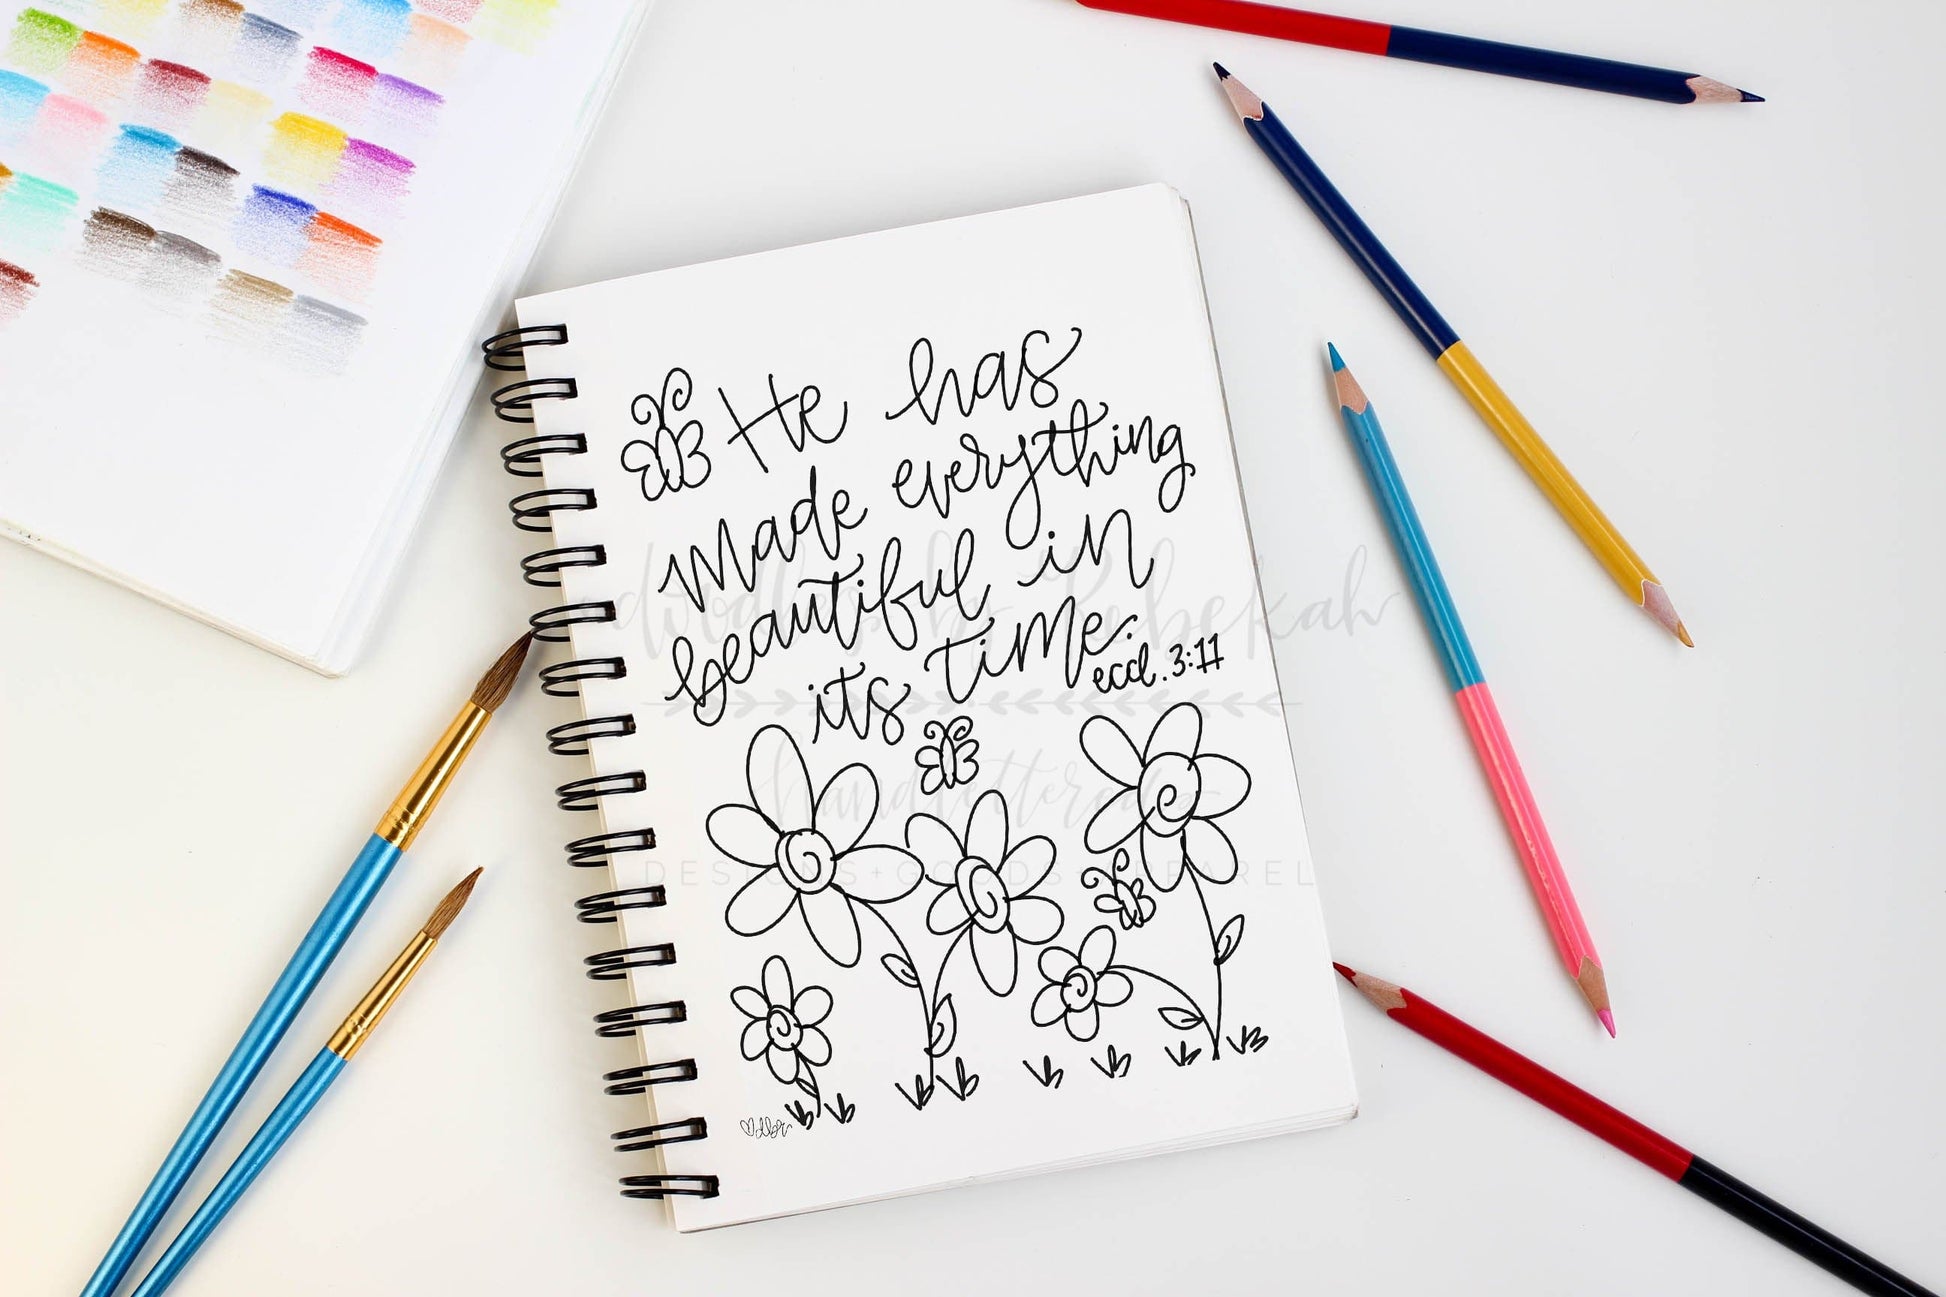 He has
made everything
beautiful in
its time.
eccl. 3:11
doodles by Rebekah
handlettered
DESIGNS + GOODS + APPAREL
dbr